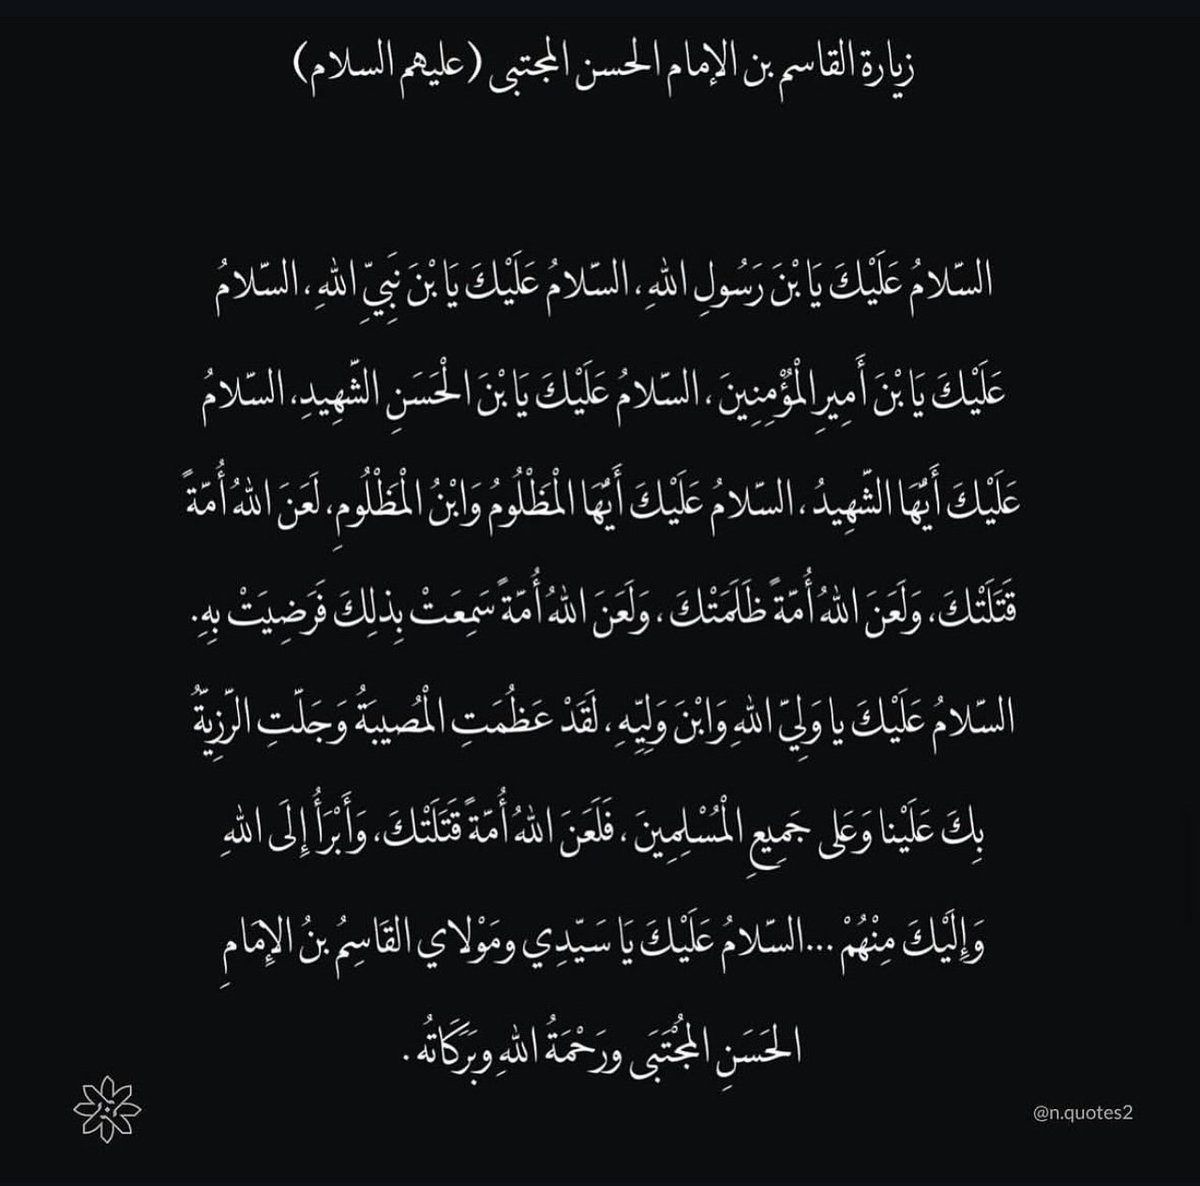 زيارة القاسم بن الإمام الحسن المجتبى (عليهم السلام)
السّلامُ عَلَيْكَ يَا بْنَ رَسُولِ اللهِ، السّلامُ عَلَيْكَ يَا بْنَ نَبِيِّ اللهِ، السّلامُ
عَلَيْكَ يَا بْنَ أَمِيرِ الْمُؤْمِنِينَ، السّلامُ عَلَيْكَ يَا بْنَ الْحَسَنِ الشّهِيدِ، السّلامُ
عَلَيْكَ أَيُّهَا الشّهِيدُ، السّلامُ عَلَيْكَ أَيُّهَا الْمَظْلُومُ وَابْنُ الْمَظْلُومِ، لَعَنَ اللهُ أُمّةً
قَتَلَتْكَ، وَلَعَنَ اللهُ أُمّةً ظَلَمَتْكَ، وَلَعَنَ اللهُ أُمّةً سَمِعَتْ بِذلِكَ فَرَضِيَتْ بِهِ.
السّلامُ عَلَيْكَ يا وَلِيّ اللهِ وَابْنَ وَلِيِّهِ، لَقَدْ عَظُمَتِ الْمُصِيبَةُ وَجَلّتِ الرّزِيّةُ
بِكَ عَلَيْنا وَعَلى جَمِيعِ الْمُسْلِمِينَ، فَلَعَنَ اللهُ أُمّةً قَتَلَتْكَ، وَأَبْرَأُ إِلَى اللهِ
وَإِلَيْكَ مِنْهُمْ ...السّلامُ عَلَيْكَ يَا سَيّدِي ومَوْلاي القَاسِمُ بنُ الإِمَامِ
الحَسَنِ المُجْتَبَى ورَحْمَةُ اللهِ وبَرَكَاتُه .
@n.quotes2